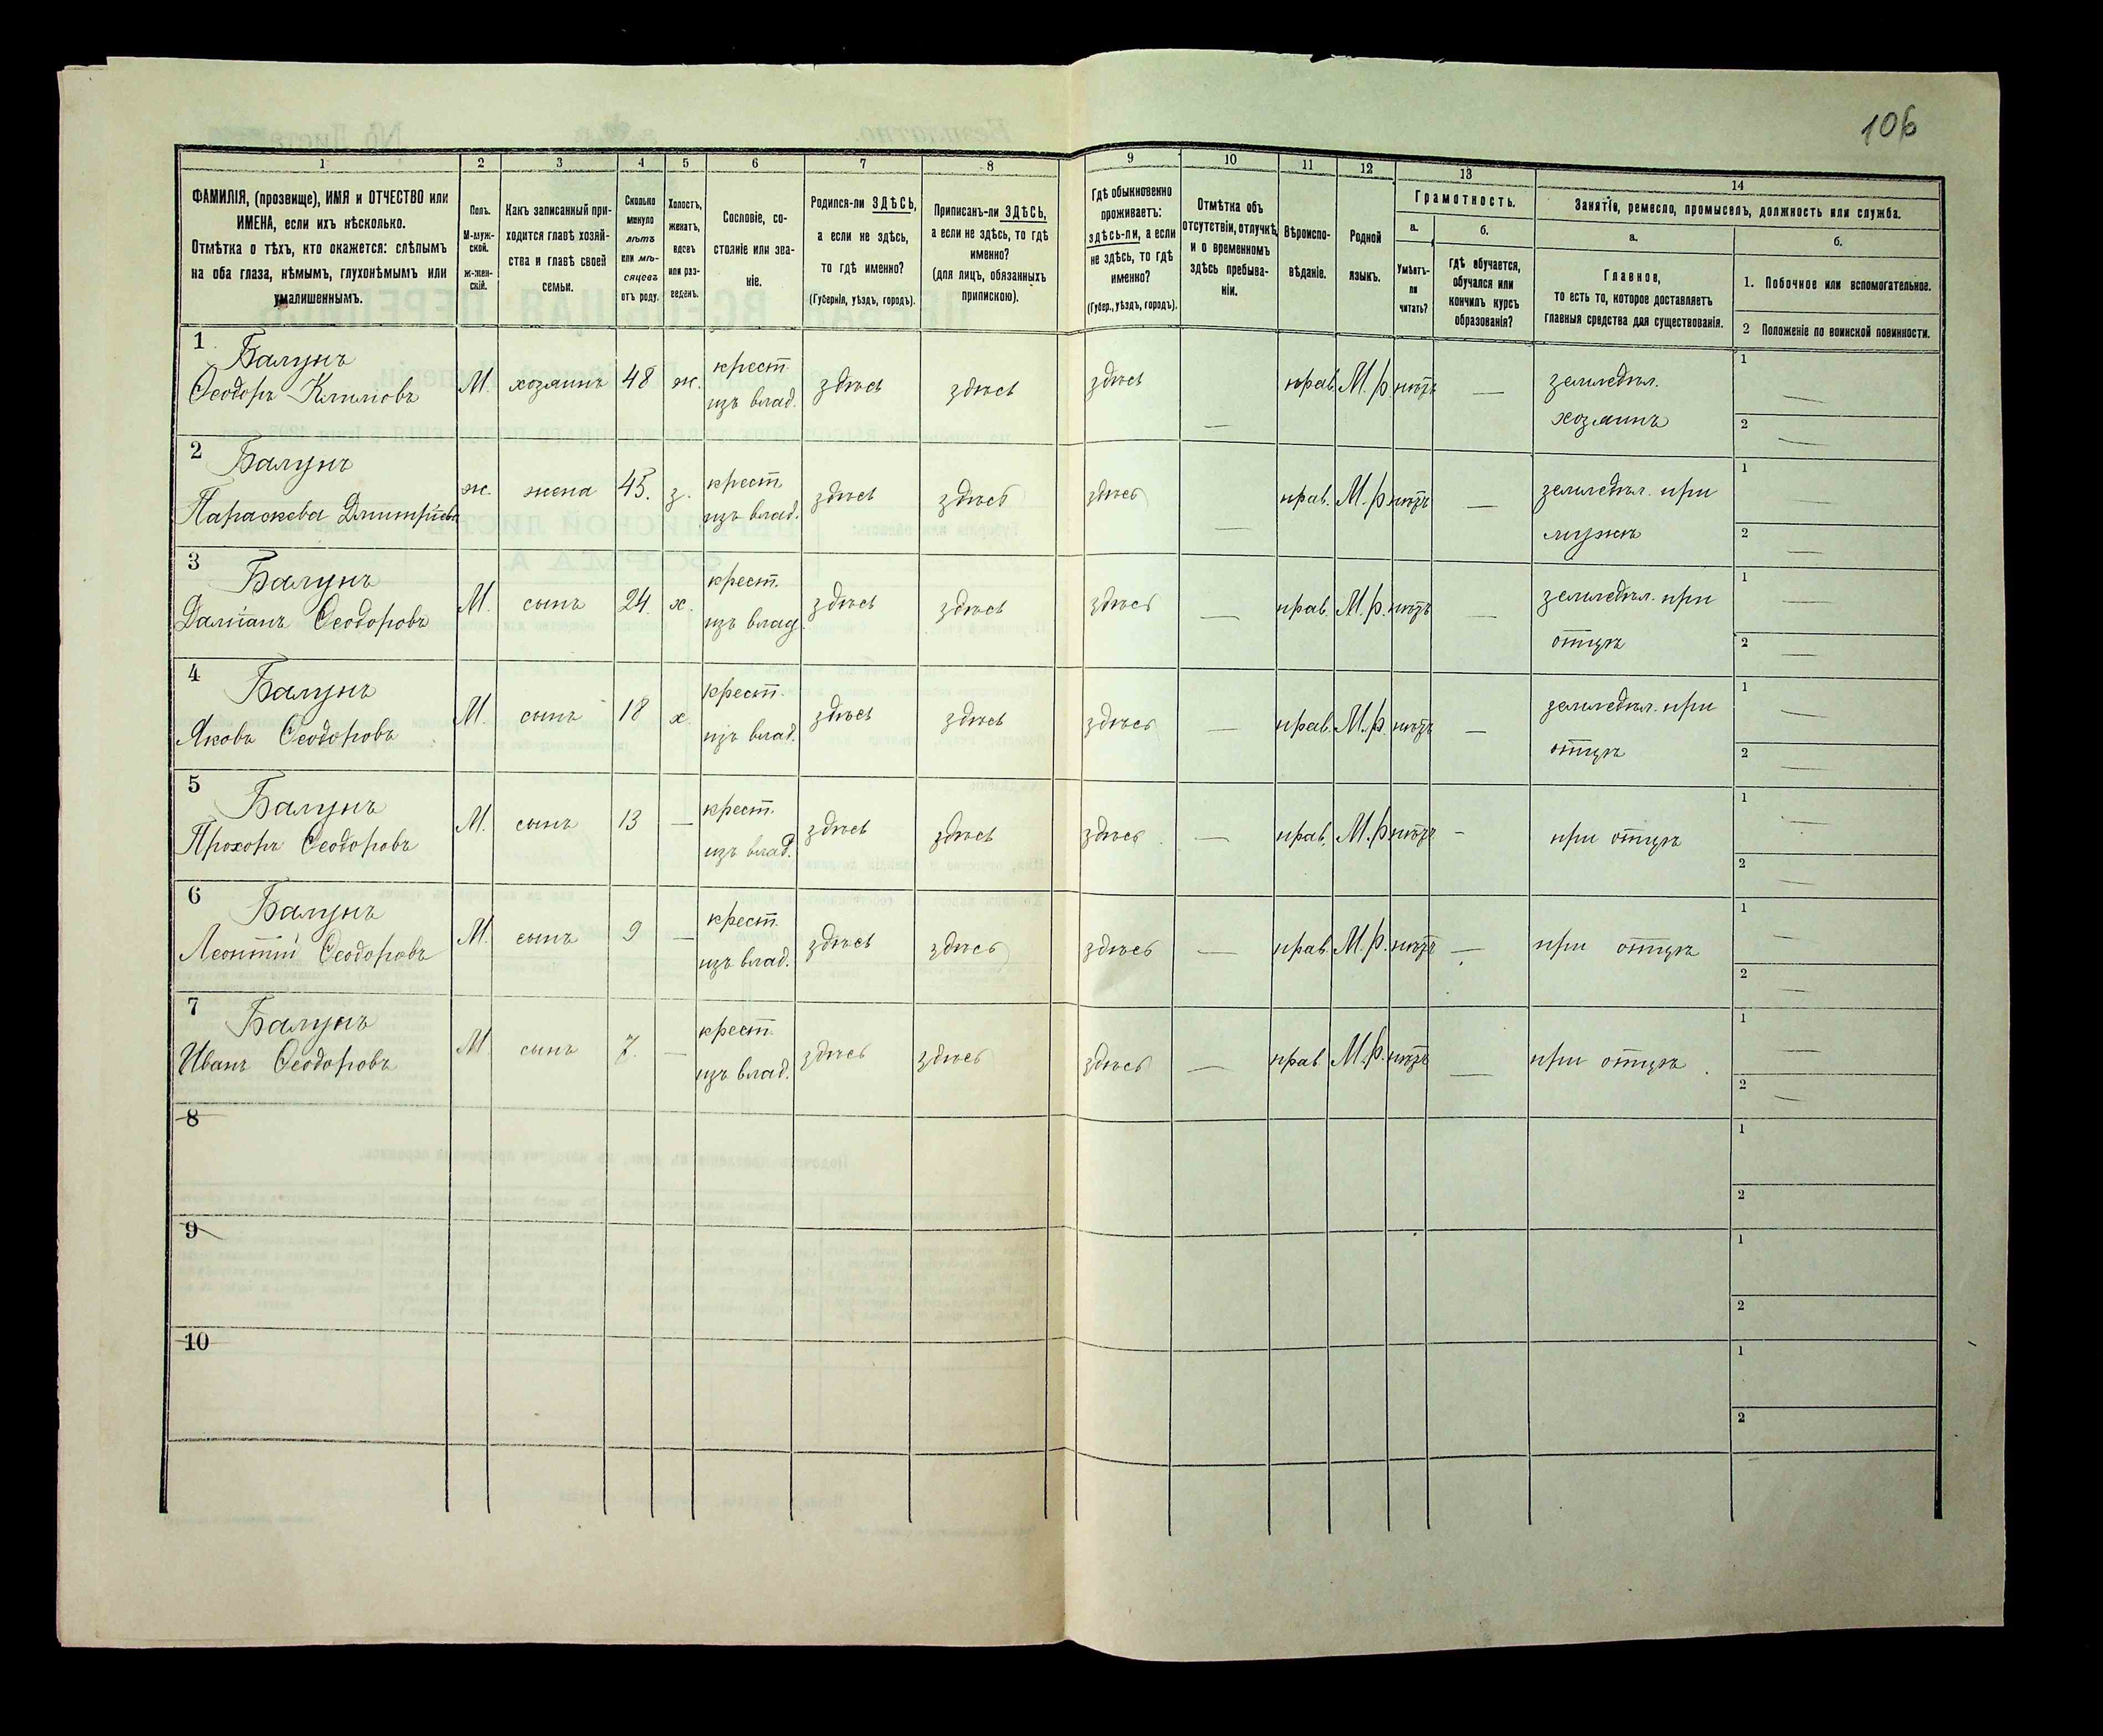 106
1 2 3 4 5 6 7 8 9 10 11 12 13 14
ФАМИЛІЯ, (прозвище), ИМЯ и ОТЧЕСТВО или
ИМЕНА, если ихъ нѣсколько.
Отмѣтка о тѣхъ, кто окажется: слѣпымъ
на оба глаза, нѣмымъ, глухонѣмымъ или
умалишеннымъ.
Полъ.
М-муж-
ской.
ж-жен-
скій.
Какъ записанный при-
ходится главѣ хозяй-
ства и главѣ своей
семьи.
Сколько
минуло
лѣтъ
или мѣ-
сяцевъ
отъ роду.
Холостъ,
женатъ,
вдовъ
или раз-
веденъ.
Сословіе, со-
стояніе или зва-
ніе.
Родился-ли ЗДѢСЬ,
а если не здѣсь,
то гдѣ именно?
(Губернія, уѣздъ, городъ).
Приписанъ-ли ЗДѢСЬ,
а если не здѣсь, то гдѣ
именно?
(для лицъ, обязанныхъ
припискою).
Гдѣ обыкновенно
проживаетъ:
здѣсь-ли, а если
не здѣсь, то гдѣ
именно?
(Губер., уѣздъ, городъ).
Отмѣтка объ
отсутствіи, отлучкѣ
и о временномъ
здѣсь пребыва-
ніи.
Вѣроиспо-
вѣданіе.
Родной
языкъ.
Грамотность.
а.
Умѣетъ-
ли
читать?
б.
Гдѣ обучается,
обучался или
кончилъ курсъ
образованія?
Занятіе, ремесло, промыселъ, должность или служба.
а.
Главное,
то есть то, которое доставляетъ
главныя средства для существованія.
б.
1. Побочное или вспомогательное.
2 Положеніе по воинской повинности.
1 Балунъ крест. земледѣл. 1 —
Ѳеодоръ Климовъ М. хозяинъ 48 ж. изъ влад. здѣсь здѣсь здѣсь — прав. М.р. нѣтъ — хозяинъ 2 —
2 Балунъ крест. земледѣл. при 1 —
Параскева Дмитріева ж. жена 45. з. изъ влад. здѣсь здѣсь здѣсь — прав. М.р. нѣтъ — мужѣ 2 —
3 Балунъ крест. земледѣл. при 1 —
Даміанъ Ѳеодоровъ М. сынъ 24. х. изъ влад. здѣсь здѣсь здѣсь — прав. М.р. нѣтъ — отцѣ 2 —
4 Балунъ крест. земледѣл. при 1 —
Яковъ Ѳеодоровъ М. сынъ 18 х. изъ влад. здѣсь здѣсь здѣсь — прав. М.р. нѣтъ — отцѣ 2 —
5 Балунъ крест. 1 —
Прохоръ Ѳеодоровъ М. сынъ 13 — изъ влад. здѣсь здѣсь здѣсь — прав. М.р. нѣтъ — при отцѣ 2 —
6 Балунъ крест. 1 —
Леонтій Ѳеодоровъ М. сынъ 9 — изъ влад. здѣсь здѣсь здѣсь — прав. М.р. нѣтъ — при отцѣ 2 —
7 Балунъ крест. 1 —
Иванъ Ѳеодоровъ М. сынъ 7. — изъ влад. здѣсь здѣсь здѣсь — прав. М.р. нѣтъ — при отцѣ 2 —
8 1
2
9 1
2
10 1
2